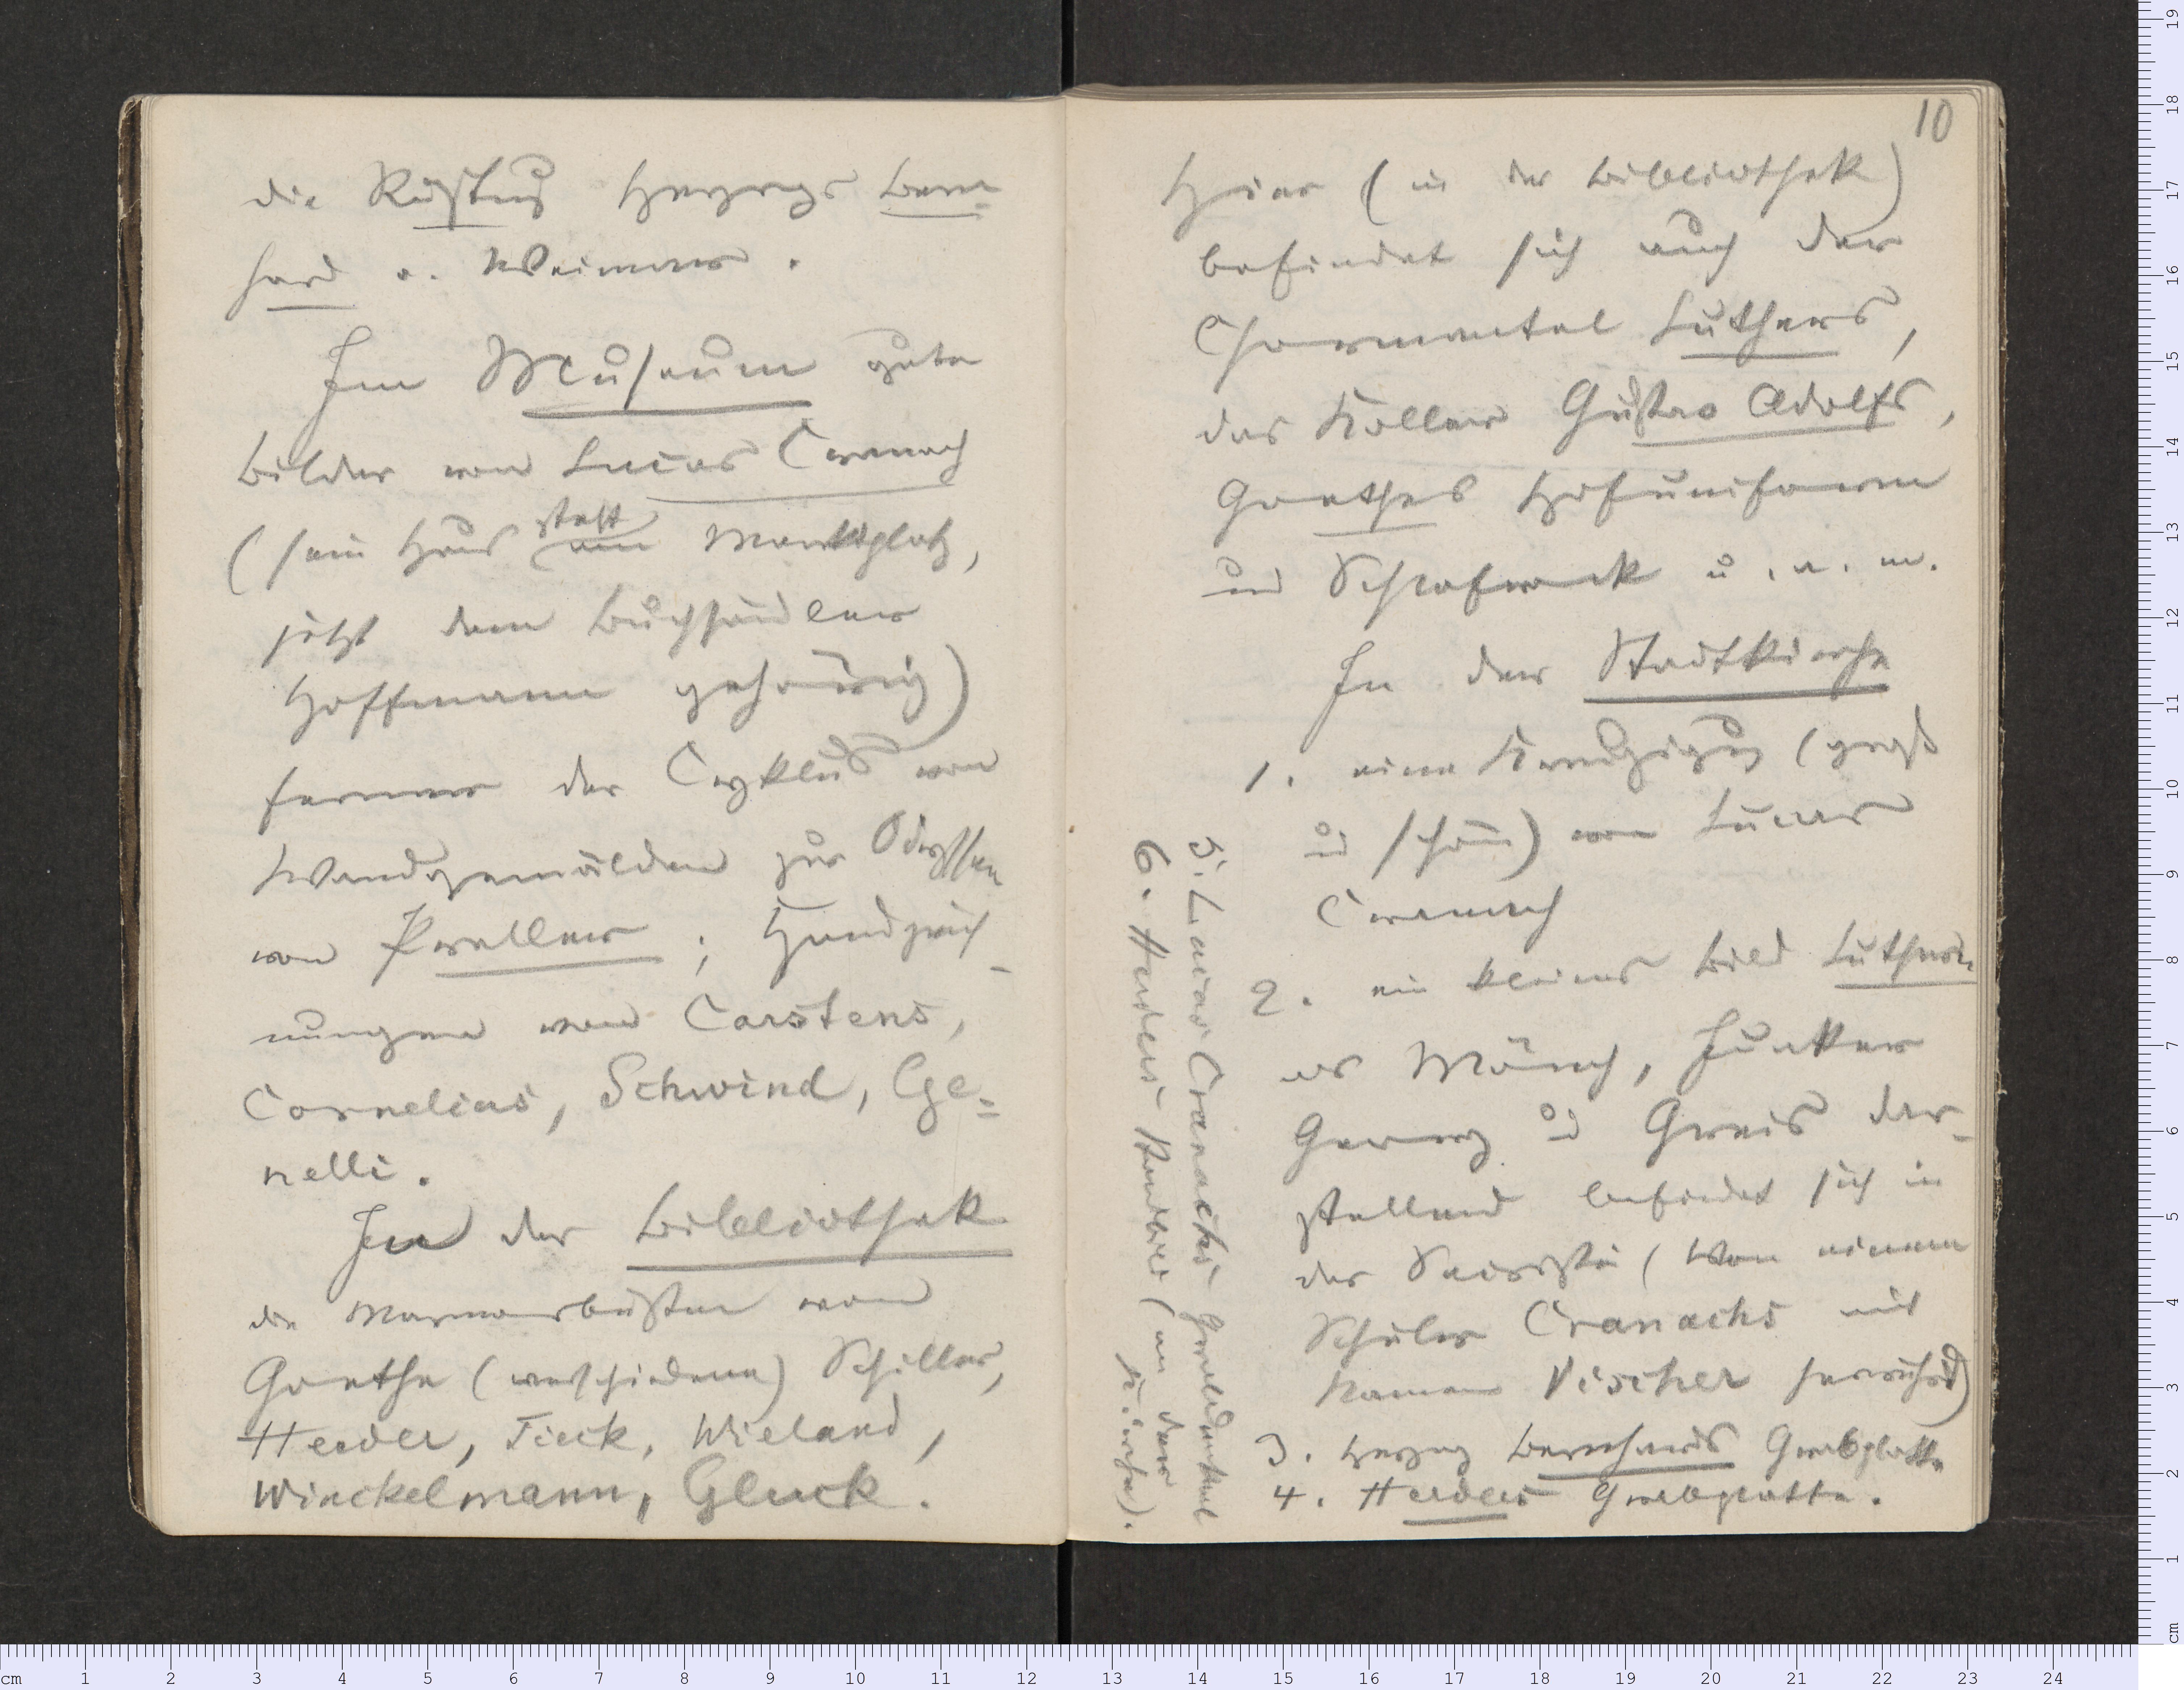 die Rüstung Herzogs Bern-
hard v. Weimar.
Im Museum gute
Bilder von Lucas Cranach
(sein Haus steht am Marktplatz,
jetzt dem Buchhändler
Hoffmann gehörig)
ferner der Cyklus von
Wandgemälden zur Odyssee
von Preller; Handzeich-
nungen von Carstens,
Cornelius, Schwind, Ge-
nelli.
In der Bibliothek
die Marmorbüsten von
Goethe (verschiedene) Schiller,
Herder, Tieck, Wieland,
Winckelmann, Gluck.
10
Hier (in der Bibliothek)
befindet sich auch der
Chormantel Luthers,
das Koller Gustav Adolfs,
Goethes Hofuniform
und Schlafrock u. a. m.
In der Stadtkirche
1. eine Kreuzigung (groß
und schön) von Lucas
Cranach
2. ein kleines Bild Luthern
als Mönch, Junker
Georg und Greis dar-
stellend befindet sich in
der Sacristei (von einem
Schüler Cranachs mit
Namen Vischer herrührend)
3. Herzog Bernhards Grabplatte
4. Herders Grabplatte.
5. Lucas Cranachs Grabdenkmal
6. Herders Standbild (an der
Kirche).